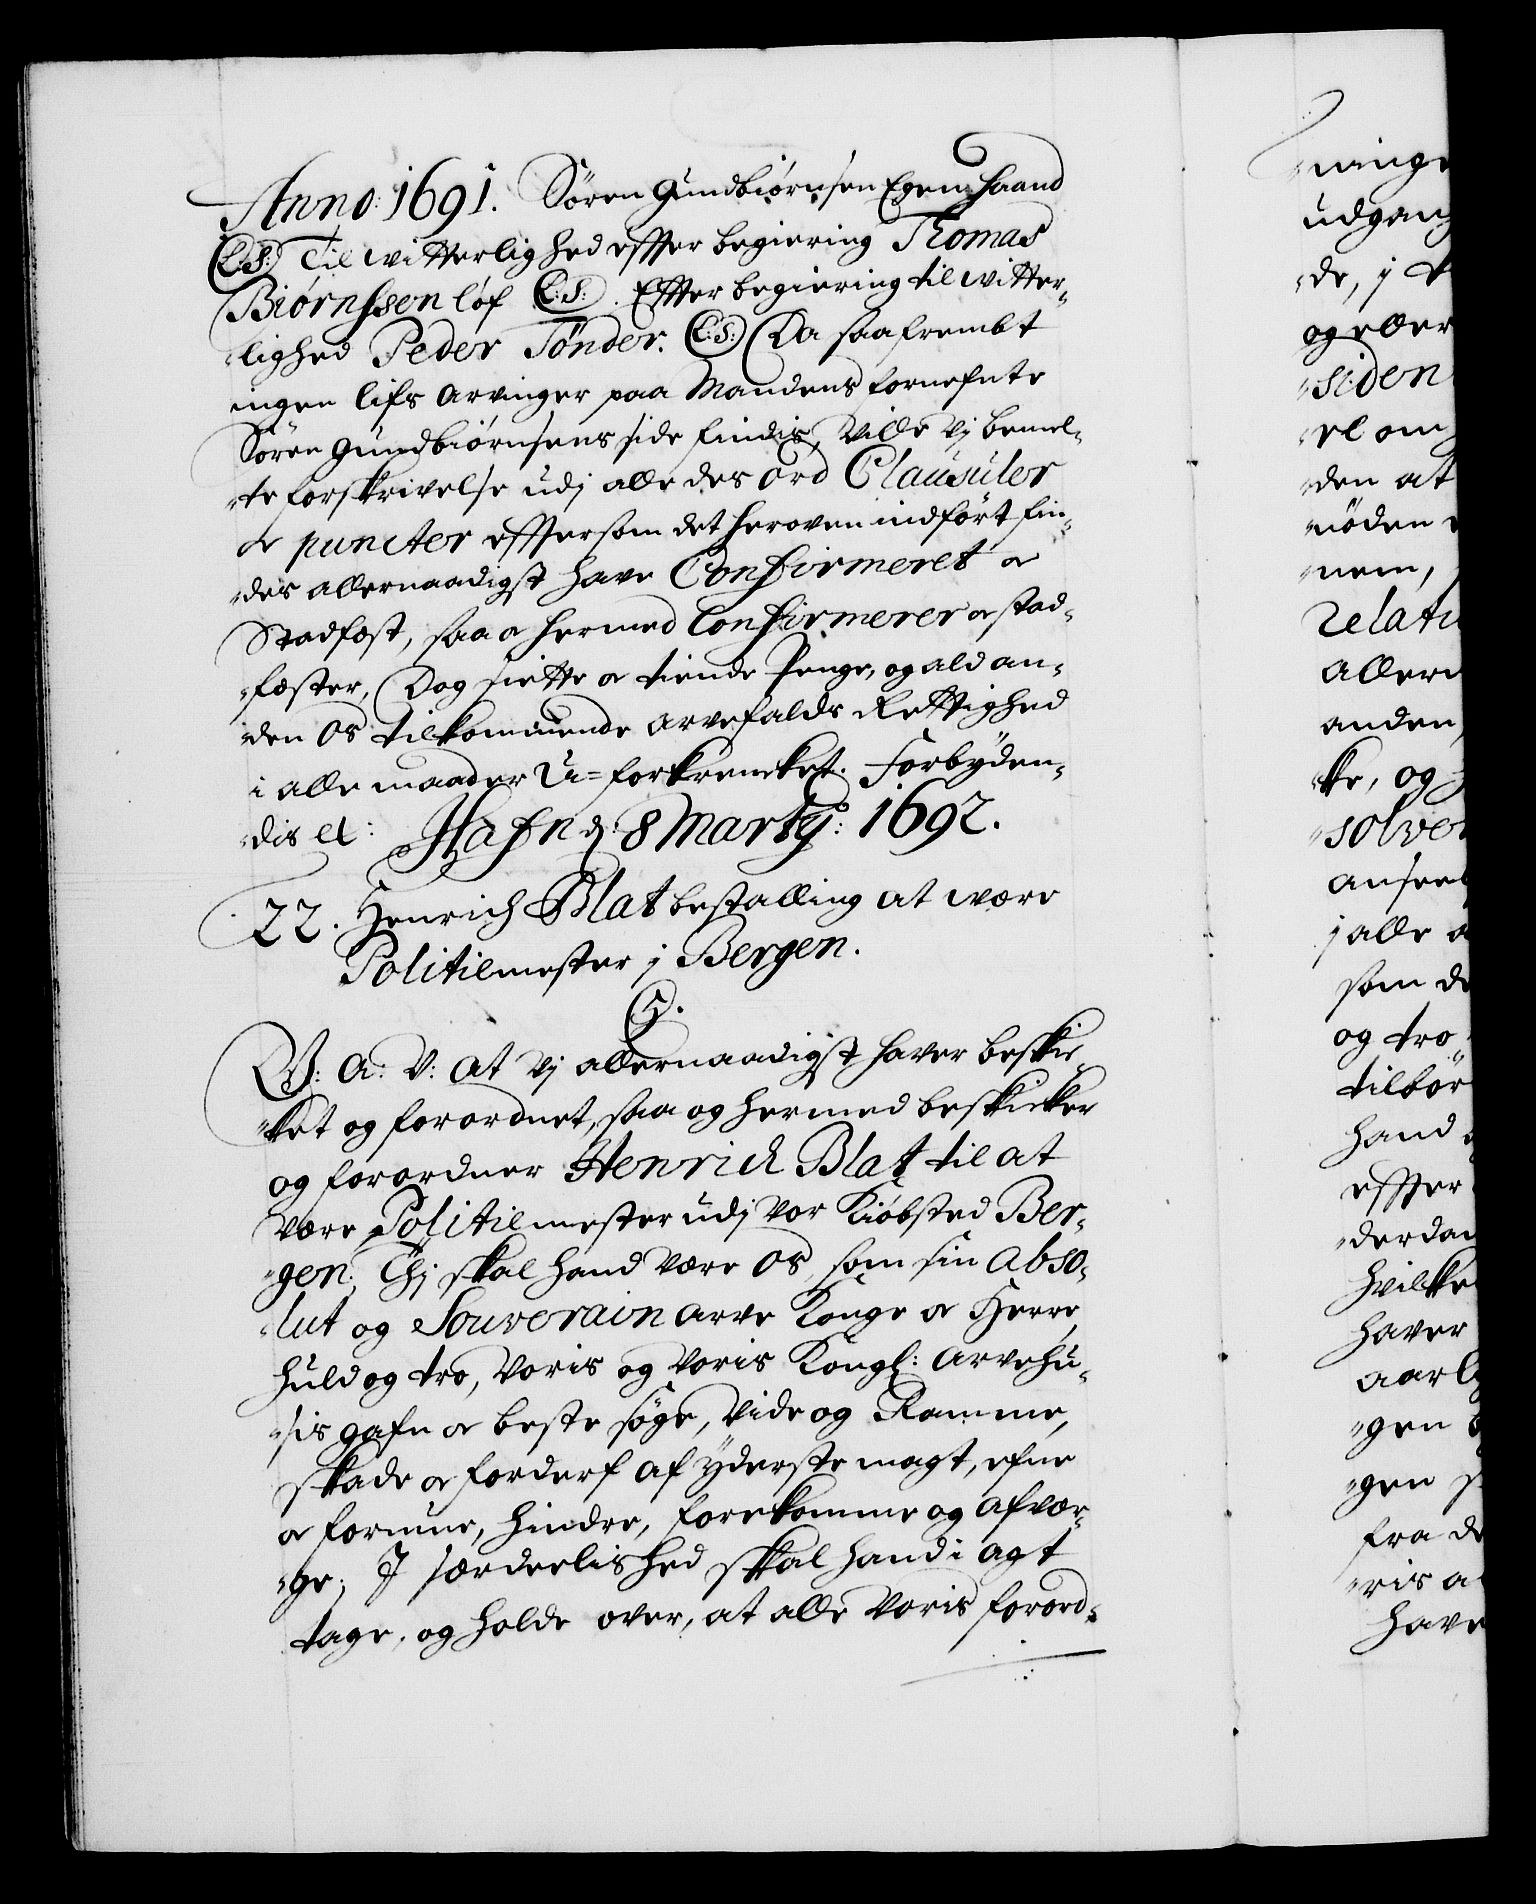 Anno: 1691. Sören Gundbiörnsen Egen Haand
(L:S:) Til witterlighed effter begiering Thomas
Biørnssen löf (L:S:). Effter begiering til witter-
lighed Peder Tönder. (L:S:) Da saafrembt
ingen lifs Arvinger paa Mandens fornefnte
Sören Gundbiörnsens side findis, Ville Vj bemel-
te forskrivelse udj alle des Ord Clausuler
og puncter effter som det heroven indfört fin-
des allernaadigst have Confirmeret og
Stadfæst, saa og hermed Confirmerer og stad-
fæster, Dog siette og tiende Penge, og ald an-
den Os tilkommende Arvefalds Rettighed
i alle maader U=forkrencket. Forbÿden-
dis etc: Hafn d: 8 Martij: 1692.
22. Henrich Blat bestalling at være
Politiemester j Bergen.
G. A: V: At Vj allernaadigst haver beskic-
ket og forordnet, saa og hermed beskicker
og forordner Henrich Blat til at
være Politiemester udj Vor Kiöbsted Ber-
gen; Thj skal hand være Os, som sin Abso-
lut og Souverain Arve Konge og Herre,
huld og tro, Voris og Voris Kongl: Arvehu-
sis gafn og beste söge, Vide og Ramme,
skade og forderf af ÿderste magt, efne
og formue, hindre, forekomme og afvær-
ge; I særdeelished skal hand i agt
tage, og holde over, at alle Voris forord-
ninge
udgang
de, j
og eller
siden
el om
den at
nöden
nem,
relati
Aller
anden,
ke, og
solver
anseel
j alle
som de
og tro
tilbör
hand
effter
derdan
hvilke
haver
aarl
gen
gen
fra de
ris a
have